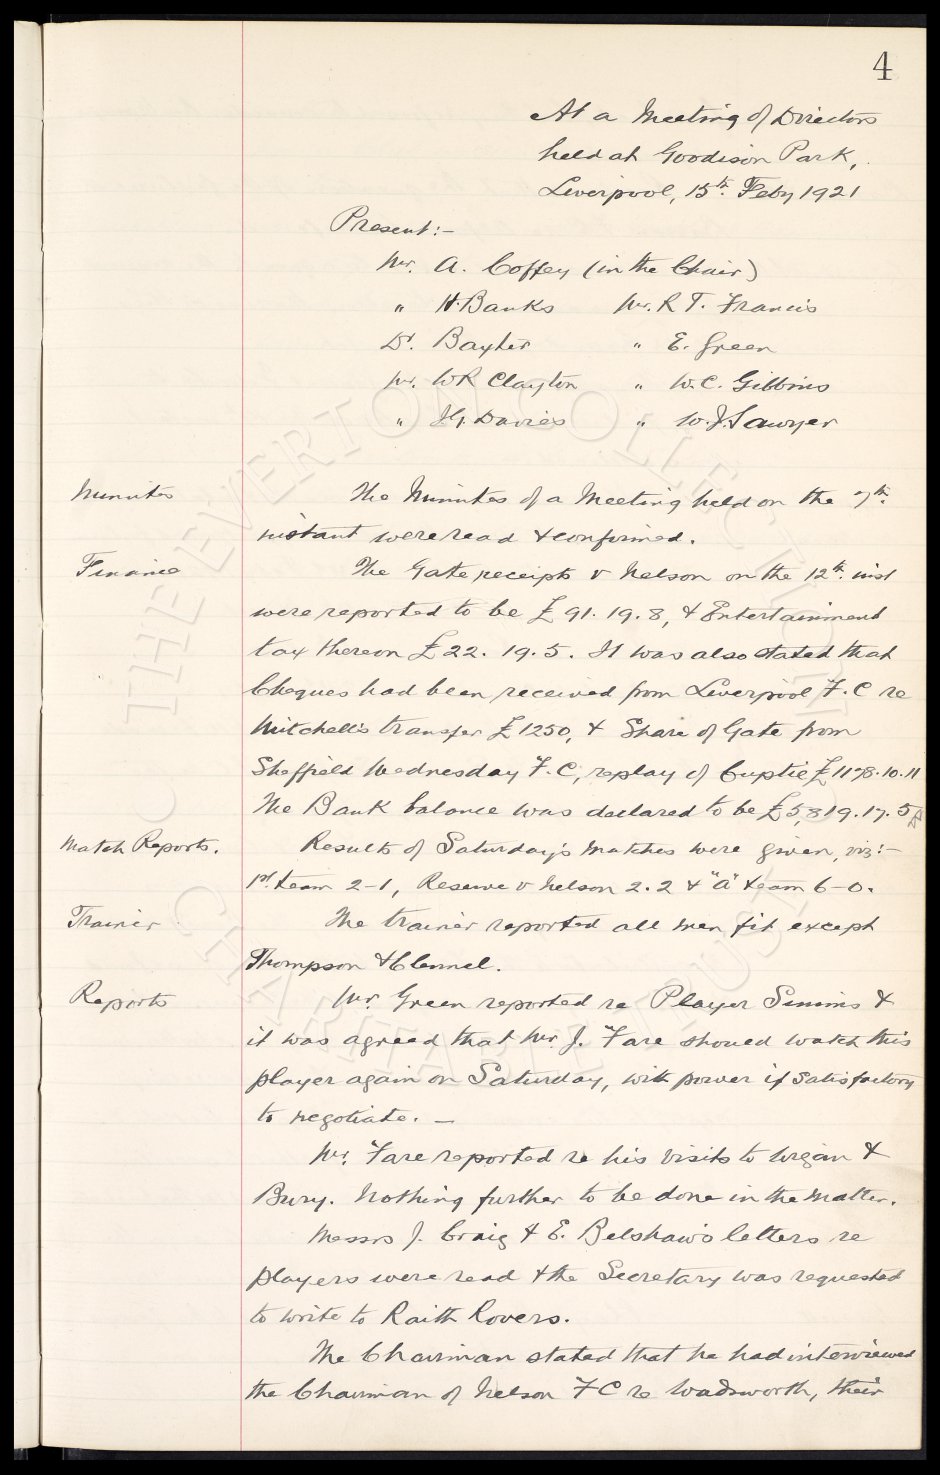 4
At a Meeting of Directors
held at Goodison Park,
Liverpool, 15th. Feby 1921
Present:-
Mr. A. Coffey (in the Chair)
" H. Banks Mr. R T. Francis
Dr. Baxter " E. Green
Mr. WR Clayton " W. C. Gibbins
" J.G. Davies " W. J. Sawyer
Minutes The Minutes of a Meeting held on the 7th.
instant were read & confirmed.
Finance The Gate receipts v Nelson on the 12th. inst
were reported to be £91. 19. 8, & Entertainment
tax thereon £22. 19. 5. It was also stated that
Cheques had been received from Liverpool F. C re
Mitchell's transfer £1250, & Share of Gate from
Sheffield Wednesday F. C, replay of Cuptie £1178. 10. 11
The Bank balance was declared to be £5,819. 17. 5
Match Reports. Results of Saturday's matches were given, viz:-
1st team 2-1, Reserve v Nelson 2. 2 & "A" team 6-0.
Trainer The trainer reported all men fit except
Thompson & Clennel.
Reports Mr. Green reported re Player Simms &
it was agreed that Mr. J. Fare should watch this
player again on Saturday, with power if satisfactory
to negotiate. -
Mr. Fare reported re his visits to Wigan &
Bury. Nothing further to be done in the matter.
Messrs J. Craig & E. Belshaw's letters re
players were read & the Secretary was requested
to write to Raith Rovers.
The Chairman stated that he had interviewed
the Chairman of Nelson F C re Wadsworth, their
© THE EVERTON COLLECTION
CHARITABLE TRUST